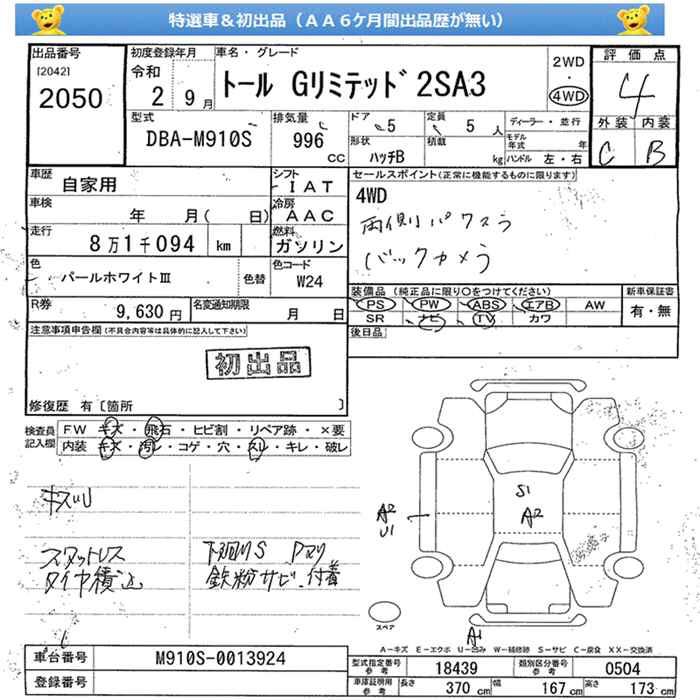 特選車＆初出品（ＡＡ６ケ月間出品歴が無い）
出品番号
[2042]
2050
初度登録年月
令和
2 9月
車名・グレード
トール Gリミテッド 2SA3
2WD
・
4WD
評価点
4
外装 内装
C B
型式
DBA-M910S
排気量
996
CC
ドア
5
定員
5 人
形状
ハッチB
積載
kg
ディーラー・並行
モデル年式 年
ハンドル 左・右
車歴
自家用
シフト
IAT
車検
年 月( 日)
冷房
AAC
走行
8万1千094 km
燃料
ガソリン
色
パールホワイトⅢ
色替
色コード
W24
R券
9,630円
名変通知期限
月 日
セールスポイント(正常に機能するものに限ります)
4WD
両側パワスラ
バックカメラ
装備品 (純正品に限り○をつけてください)
PS PW ABS エアB AW
SR ナビ TV カワ
新車保証書
有・無
後日品
注意事項申告欄(不具合内容等は具体的に記入して下さい)
初出品
修復歴 有〔箇所 〕
検査員
記入欄
FW キズ・飛石・ヒビ割・リペア跡・×要
内装 キズ・汚レ・コゲ・穴・スレ・キレ・破レ
キズU
スタットレス
タイヤ積込
下回りS
鉄粉サビ、付着
S1
A2
A2
U1
A1
スペア
A－キズ E－エクボ U－凹み W－補修跡 S－サビ C－腐食 XX－交換済
車台番号
M910S-0013924
登録番号
型式指定番号
参考
18439
類別区分番号
参考
0504
車庫証明用
参考
長さ 370 cm 幅 167 cm 高さ 173 cm